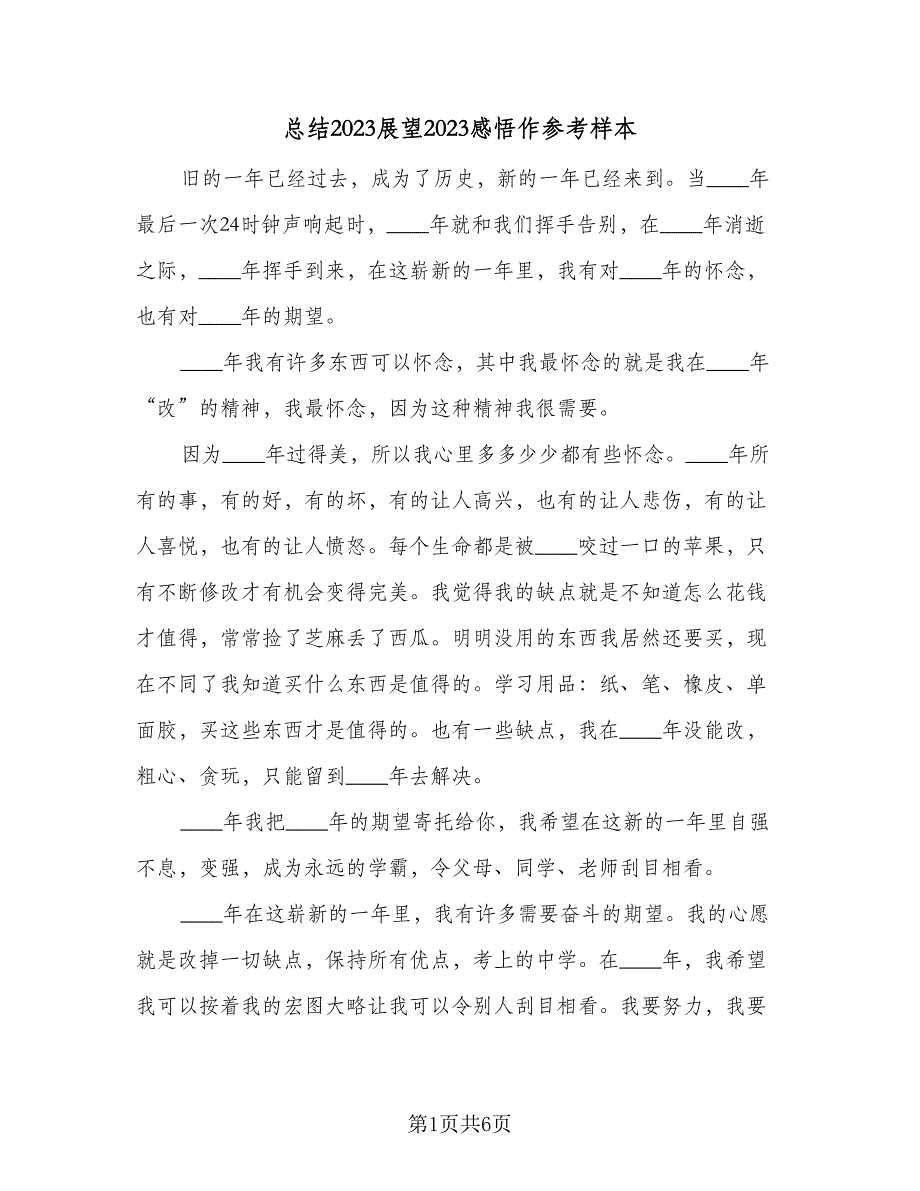 总结2023展望2023感悟作参考样本
旧的一年已经过去，成为了历史，新的一年已经来到。当____年
最后一次24时钟声响起时，____年就和我们挥手告别，在____年消逝
之际，____年挥手到来，在这崭新的一年里，我有对____年的怀念，
也有对____年的期望。
____年我有许多东西可以怀念，其中我最怀念的就是我在____年
“改”的精神，我最怀念，因为这种精神我很需要。
因为____年过得美，所以我心里多多少少都有些怀念。____年所
有的事，有的好，有的坏，有的让人高兴，也有的让人悲伤，有的让
人喜悦，也有的让人愤怒。每个生命都是被____咬过一口的苹果，只
有不断修改才有机会变得完美。我觉得我的缺点就是不知道怎么花钱
才值得，常常捡了芝麻丢了西瓜。明明没用的东西我居然还要买，现
在不同了我知道买什么东西是值得的。学习用品：纸、笔、橡皮、单
面胶，买这些东西才是值得的。也有一些缺点，我在____年没能改，
粗心、贪玩，只能留到____年去解决。
____年我把____年的期望寄托给你，我希望在这新的一年里自强
不息，变强，成为永远的学霸，令父母、同学、老师刮目相看。
____年在这崭新的一年里，我有许多需要奋斗的期望。我的心愿
就是改掉一切缺点，保持所有优点，考上的中学。在____年，我希望
我可以按着我的宏图大略让我可以令别人刮目相看。我要努力，我要
第1页共6页